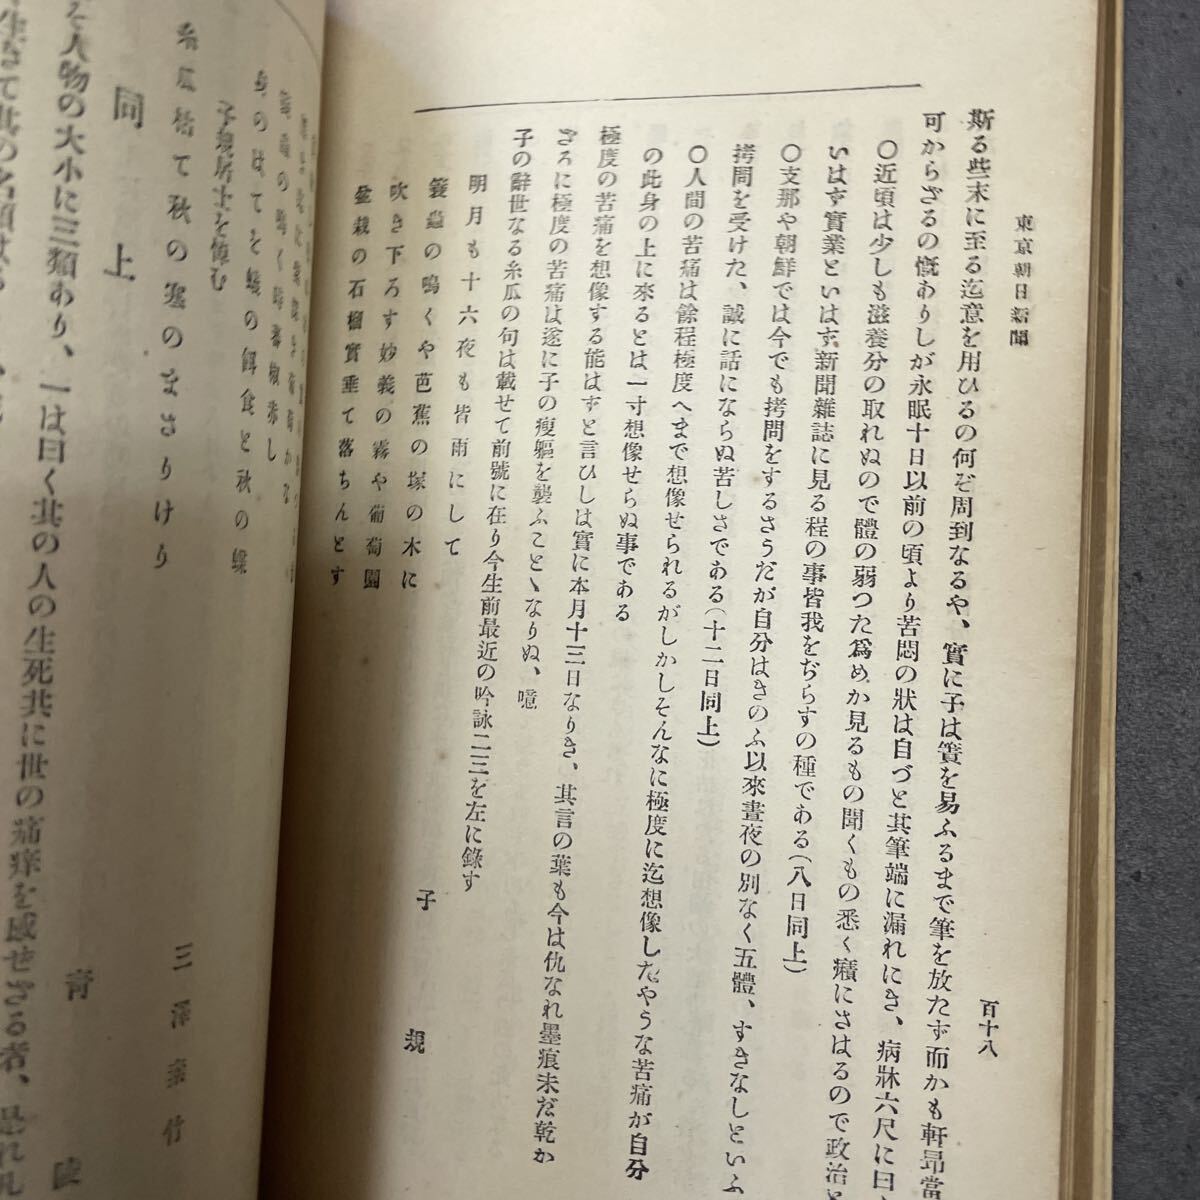 東京朝日新聞
百十八
斯る些末に至る迄意を用ひるの何ぞ周到なるや、實に子は簀を易ふるまで筆を放たず而かも軒昻當
可からざるの慨ありしが永眠十日以前の頃より苦悶の狀は自づと其筆端に漏れにき、病牀六尺に曰
〇近頃は少しも滋養分の取れぬので體の弱つた爲めか見るもの聞くもの悉く癪にさはるので政治と
いはず實業といはず新聞雜誌に見る程の事皆我をぢらすの種である(八日同上)
〇支那や朝鮮では今でも拷問をするさうだが自分はきのふ以來晝夜の別なく五體、すきなしといふ
拷問を受けた、誠に話にならぬ苦しさである(十二日同上)
〇人間の苦痛は餘程極度へまで想像せられるがしかしそんなに極度に迄想像したやうな苦痛が自分
の此身の上に來るとは一寸想像せらぬ事である
極度の苦痛を想像する能はずと言ひしは實に本月十三日なりき、其言の葉も今は仇なれ墨痕未だ乾か
ざるに極度の苦痛は遂に子の瘦軀を襲ふことゝなりぬ、噫
子の辭世なる糸瓜の句は載せて前號に在り今生前最近の吟詠二三を左に錄す
子規
明月も十六夜も皆雨にして
簑蟲の鳴くや芭蕉の塚の木に
吹き下ろす妙義の霧や葡萄園
盆栽の石榴實垂て落ちんとす
身のはてを蟻の餌食と秋の蝶
子規居士を悼む
三澤
糸瓜枯て秋の塞のまさりけり
同上
青
人物の大小に三類あり、一は曰く其の人の生死共に世の痛痒を感せざる者、